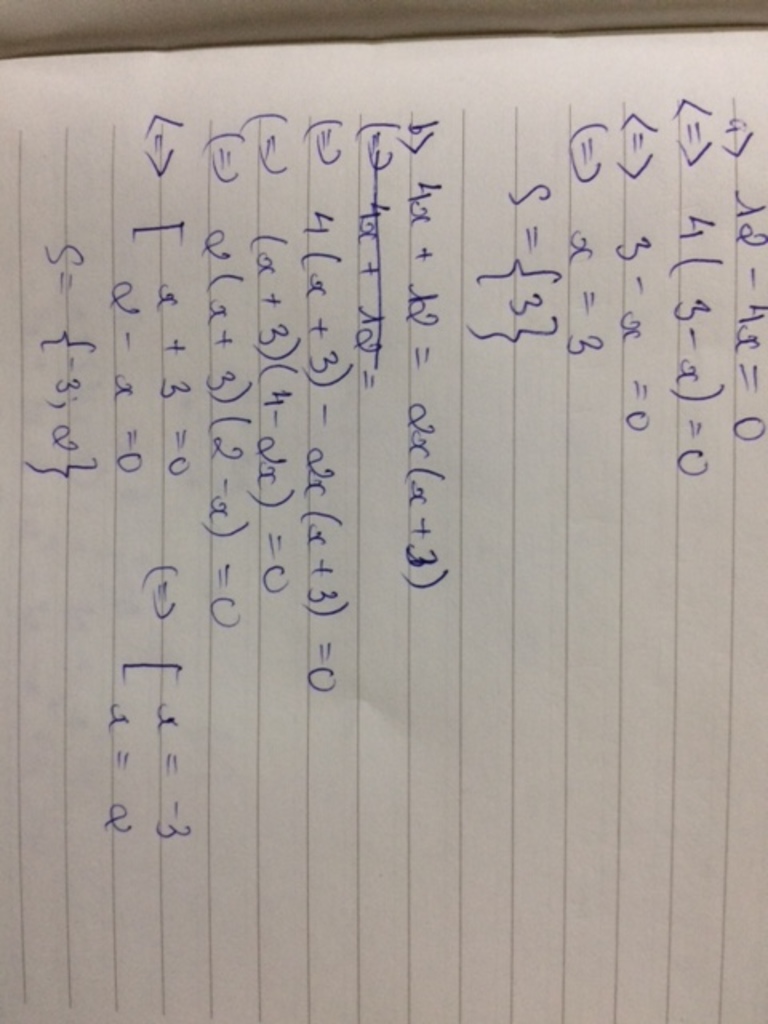 a) 12 - 4x = 0
<=> 4(3-x) = 0
<=> 3 - x = 0
(=) x = 3
S = {3}
b) 4x + 12 = 2x(x+3)
(=) 4x + 12 =
(=) 4(x+3) - 2x(x+3) = 0
(=) (x+3)(4-2x) = 0
(=) 2(x+3)(2-x) = 0
<=> [ x + 3 = 0 (=) [ x = -3
2 - x = 0 x = 2
S = {-3; 2}